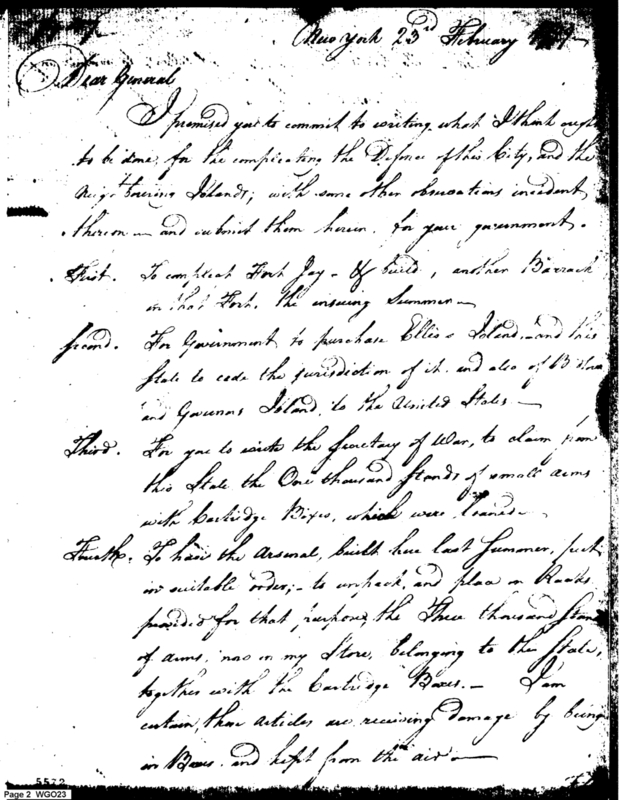 New York 23rd February
Dear General
I promised you to commit to writing, what I think ought
to be done, for the compleating the Defence of this City, and the
neighbouring Islands; with some other observations incident
thereon — and submit them herein, for your government.
First. To compleat Fort Jay — & build, another Barrack
in that Fort, the insuing Summer —
Second. For Government to purchase Ellis's Island — and this
State to cede the jurisdiction of it, and also of
and Govenors Island, to the United States —
Third. For you to write the Secretary of War, to claim from
this State the One thousand Stands of small arms
with Cartridge Boxes, which were loaned —
Fourth. To have the Arsenal, built here last Summer, put
in suitable order; — to unpack, and place on Racks
provided for that purpose, the Three thousand Stand
of arms, now in my Store, belonging to the State,
together with the Cartridge Boxes. — I am
certain, these articles are receiving damage by being
in Boxes and kept from the air —
5572
Page 2 WGO23